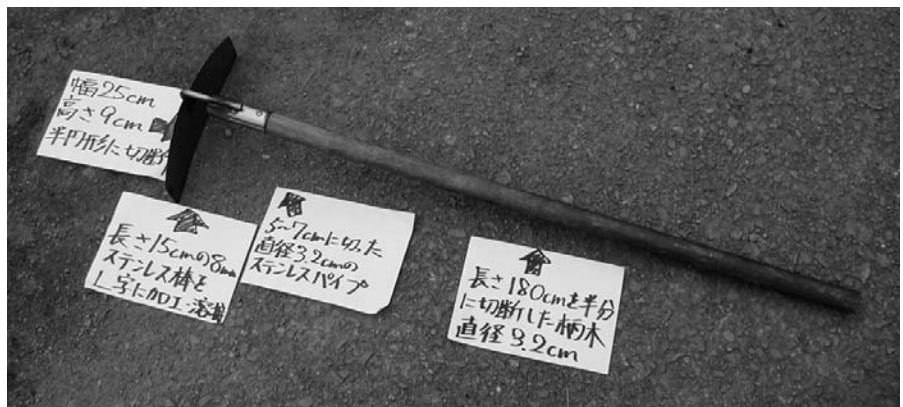 幅25cm
高さ9cm
半円形に切断
長さ15cmの8mm
ステンレス棒を
L字に加工・溶接
5~7cmに切った
直径3.2cmの
ステンレスパイプ
長さ180cmを半分
に切断した柄木
直径3.2cm